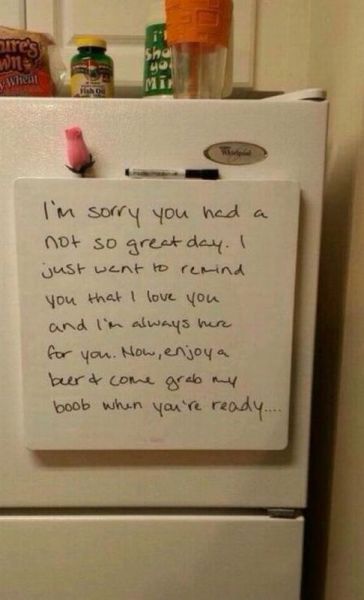 Fish Oil
Whirlpool
I'm sorry you had a
not so great day. I
just want to remind
you that I love you
and I'm always here
for you. Now, enjoy a
beer & come grab my
boob when you're ready....